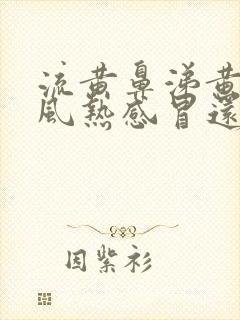 流黄鼻涕黄
风热感冒还
因紫衫